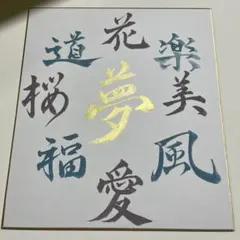 道 花 楽
桜 夢 美
福 愛 風